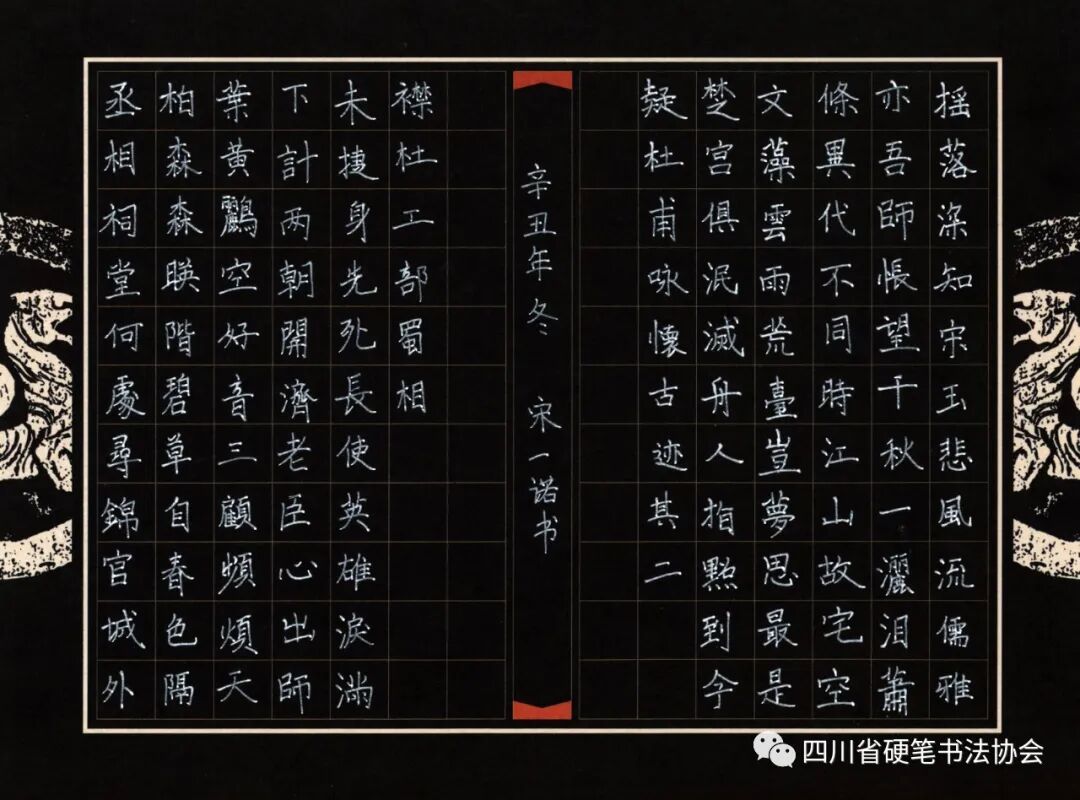 摇落深知宋玉悲風流儒雅
亦吾師悵望千秋一灑泪蕭
條異代不同時江山故宅空
文藻雲雨荒臺豈夢思最是
楚宫俱泯滅舟人指點到今
疑杜甫咏懷古迹其二
辛丑年冬 宋一诺书
丞相祠堂何處尋錦官城外
柏森森暎階碧草自春色隔
葉黄鸝空好音三顧頻煩天
下計两朝開濟老臣心出師
未捷身先死長使英雄淚滿
襟杜工部蜀相
四川省硬笔书法协会